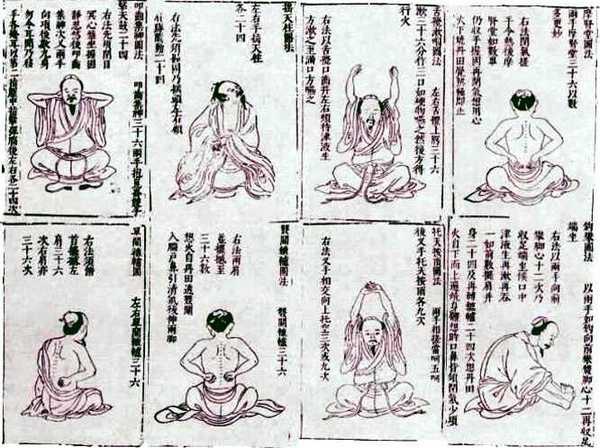 摩腎堂圖法
兩手摩腎堂三十六以數
多更妙
右法閉氣搓
手令熱後摩
腎堂如數畢
仍收手握固再閉氣想用心
火下燒丹田覺熱極即止
舌攪漱咽圖法 左右舌攪上腭三十六
漱三十六分作三口如硬物嚥之然後方得
行火
右法以舌攪口齒并左右頰待津液生
方漱之至滿口方嚥之
搖天柱圖法
左右手搖天柱
各二十四
右法先須握固乃搖頭左右顧
肩膊隨動二十四
叩齒集神圖法 叩齒集神三十六兩手抱崑崙雙手
擊天鼓二十四
右法先須閉目
冥心盤坐握固
靜思然後叩齒
集神次叉兩手
向項後數九息
勿令耳聞乃移
手各掩耳以第二指壓中指擊彈腦後左右各二十四次
鉤攀圖法 以兩手如鉤向前攀雙腳心十二再收足
端坐
右法以兩手向前
攀腳心十二次乃
收足端坐候口中
津液生再漱再吞
一如前數擺肩并
身二十四及再轉轆轤二十四次想丹田
火自下而上遍燒身體想時口鼻皆須閉氣少頃
托天按頂圖法 兩手相搓當呵五呵
後叉手托天按頂各九次
右法叉手相交向上托空三次或九次
雙關轆轤圖法 雙關轆轤三十六
右法兩肩
並擺撼至
三十六數
想火自丹田透雙關
入腦戶鼻引清氣後伸兩腳
單關轆轤圖法 左右單關轆轤三十六
右法須俯
首擺撼左
肩三十六
次右肩亦
三十六次